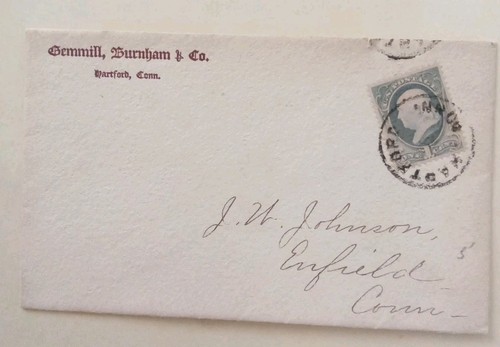 Gemmill, Burnham & Co.
Hartford, Conn.
J. W. Johnson,
Enfield
Conn
5